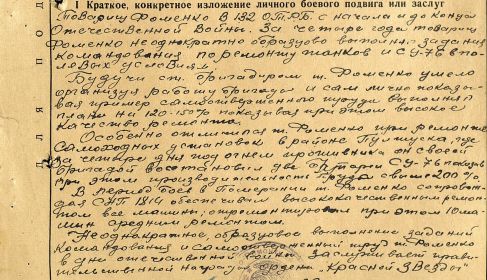 I Краткое, конкретное изложение личного боевого подвига или заслуг
Товарищ Фоменко в 132 ОТРБ с начала и до конца
Отечественной Войны. За четыре года товарищ
Фоменко неоднократно образцово выполнял задания
командования по ремонту танков и СУ-76 в по-
левых условиях.
Будучи ст. бригадиром т. Фоменко умело
организуя работу бригады и сам лично показы-
вая пример самоотверженного труда выполнял
планы на 120-150% показывая при этом высокое
качество ремонта.
Особенно отличился т. Фоменко при ремонте
самоходных установок в районе Пултуска где
за четыре дня под огнем противника он своей
бригадой восстановил две СУ-76 показав
при этом производительность труда свыше 200%.
В период боев в Померании т. Фоменко сопровож-
дая САП 1814 обеспечил высококачественным ремон-
том все машины, отремонтировав при этом 10 ма-
шин средним ремонтом.
Неоднократное, образцовое выполнение заданий
командования и самоотверженный труд т. Фоменко
в дни отечественной войны заслуживает прави-
тельственной награды ордена "Красной ЗВЕЗДЫ"